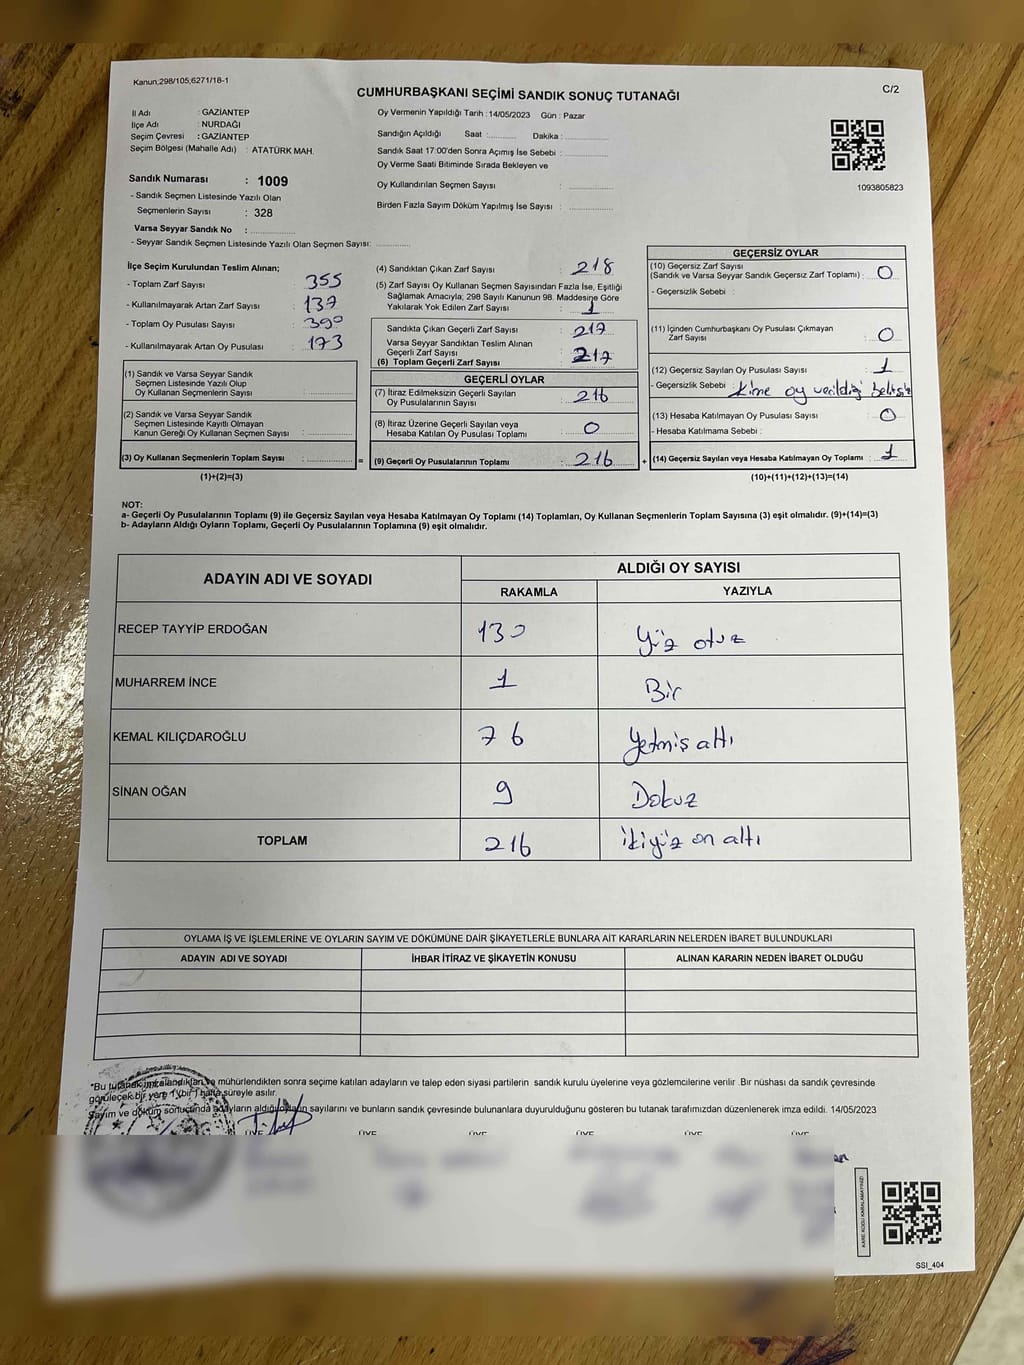 Kanun;298/105;6271/18-1
CUMHURBAŞKANI SEÇİMİ SANDIK SONUÇ TUTANAĞI
C/2
İl Adı : GAZİANTEP
İlçe Adı : NURDAĞI
Seçim Çevresi : GAZİANTEP
Seçim Bölgesi (Mahalle Adı) : ATATÜRK MAH.
Oy Vermenin Yapıldığı Tarih : 14/05/2023 Gün : Pazar
Sandığın Açıldığı Saat :.......... Dakika :................
Sandık Saat 17:00'den Sonra Açımış İse Sebebi :................
Oy Verme Saati Bitiminde Sırada Bekleyen ve
Oy Kullandırılan Seçmen Sayısı :................
Birden Fazla Sayım Döküm Yapılmış İse Sayısı :................
1093805823
Sandık Numarası : 1009
- Sandık Seçmen Listesinde Yazılı Olan
Seçmenlerin Sayısı : 328
Varsa Seyyar Sandık No :................
- Seyyar Sandık Seçmen Listesinde Yazılı Olan Seçmen Sayısı: ............
İlçe Seçim Kurulundan Teslim Alınan;
- Toplam Zarf Sayısı : 355
- Kullanılmayarak Artan Zarf Sayısı : 137
- Toplam Oy Pusulası Sayısı : 390
- Kullanılmayarak Artan Oy Pusulası : 173
(1) Sandık ve Varsa Seyyar Sandık
Seçmen Listesinde Yazılı Olup
Oy Kullanan Seçmenlerin Sayısı :................
(2) Sandık ve Varsa Seyyar Sandık
Seçmen Listesinde Kayıtlı Olmayan
Kanun Gereği Oy Kullanan Seçmen Sayısı :................
(3) Oy Kullanan Seçmenlerin Toplam Sayısı :................ =
(1)+(2)=(3)
(4) Sandıktan Çıkan Zarf Sayısı : 218
(5) Zarf Sayısı Oy Kullanan Seçmen Sayısından Fazla İse, Eşitliği
Sağlamak Amacıyla; 298 Sayılı Kanunun 98. Maddesine Göre
Yakılarak Yok Edilen Zarf Sayısı : 1
Sandıkta Çıkan Geçerli Zarf Sayısı : 217
Varsa Seyyar Sandıktan Teslim Alınan
Geçerli Zarf Sayısı
(6) Toplam Geçerli Zarf Sayısı : 217
GEÇERLİ OYLAR
(7) İtiraz Edilmeksizin Geçerli Sayılan
Oy Pusulalarının Sayısı : 216
(8) İtiraz Üzerine Geçerli Sayılan veya
Hesaba Katılan Oy Pusulası Toplamı : 0
(9) Geçerli Oy Pusulalarının Toplamı : 216 +
GEÇERSİZ OYLAR
(10) Geçersiz Zarf Sayısı
(Sandık ve Varsa Seyyar Sandık Geçersiz Zarf Toplamı) : 0
- Geçersizlik Sebebi :
(11) İçinden Cumhurbaşkanı Oy Pusulası Çıkmayan
Zarf Sayısı : 0
(12) Geçersiz Sayılan Oy Pusulası Sayısı : 1
- Geçersizlik Sebebi : Kime oy verildiği belirsiz
(13) Hesaba Katılmayan Oy Pusulası Sayısı : 0
- Hesaba Katılmama Sebebi :
(14) Geçersiz Sayılan veya Hesaba Katılmayan Oy Toplamı : 1
(10)+(11)+(12)+(13)=(14)
NOT:
a- Geçerli Oy Pusulalarının Toplamı (9) ile Geçersiz Sayılan veya Hesaba Katılmayan Oy Toplamı (14) Toplamları, Oy Kullanan Seçmenlerin Toplam Sayısına (3) eşit olmalıdır. (9)+(14)=(3)
b- Adayların Aldığı Oyların Toplamı, Geçerli Oy Pusulalarının Toplamına (9) eşit olmalıdır.
ADAYIN ADI VE SOYADI
ALDIĞI OY SAYISI
RAKAMLA YAZIYLA
RECEP TAYYİP ERDOĞAN 130 Yüz otuz
MUHARREM İNCE 1 Bir
KEMAL KILIÇDAROĞLU 76 Yetmiş altı
SİNAN OĞAN 9 Dokuz
TOPLAM 216 ikiyüz on altı
OYLAMA İŞ VE İŞLEMLERİNE VE OYLARIN SAYIM VE DÖKÜMÜNE DAİR ŞİKAYETLERLE BUNLARA AİT KARARLARIN NELERDEN İBARET BULUNDUKLARI
ADAYIN ADI VE SOYADI İHBAR İTİRAZ VE ŞİKAYETİN KONUSU ALINAN KARARIN NEDEN İBARET OLDUĞU
*Bu tutanak imzalandıktan ve mühürlendikten sonra seçime katılan adayların ve talep eden siyasi partilerin sandık kurulu üyelerine veya gözlemcilerine verilir. Bir nüshası da sandık çevresinde
görülecek bir yere 1 (bir) hafta süreyle asılır.
Sayım ve döküm sonucunda adayların aldığı oyların sayılarını ve bunların sandık çevresinde bulunanlara duyurulduğunu gösteren bu tutanak tarafımızdan düzenlenerek imza edildi. 14/05/2023
ÜYE ÜYE ÜYE ÜYE ÜYE ÜYE
KARE KODU KARALAMAYINIZ!
SSI_404